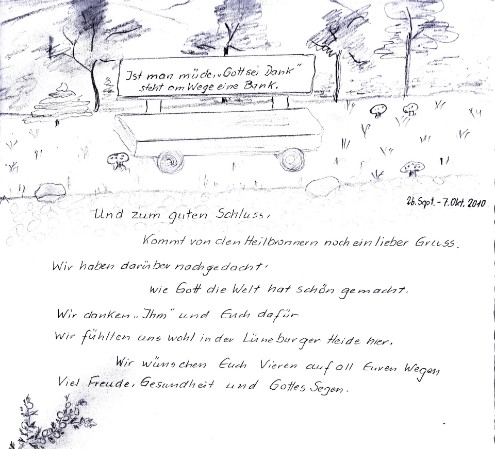 Ist man müde, „Gott sei Dank"
steht am Wege eine Bank.
26. Sept. - 7. Okt. 2010
Und zum guten Schluss,
Kommt von den Heilbronnern noch ein lieber Gruss.
Wir haben darüber nachgedacht,
wie Gott die Welt hat schön gemacht.
Wir danken „Ihm" und Euch dafür
Wir fühlten uns wohl in der Lüneburger Heide hier.
Wir wünschen Euch Vieren auf all Euren Wegen
Viel Freude, Gesundheit und Gottes Segen.